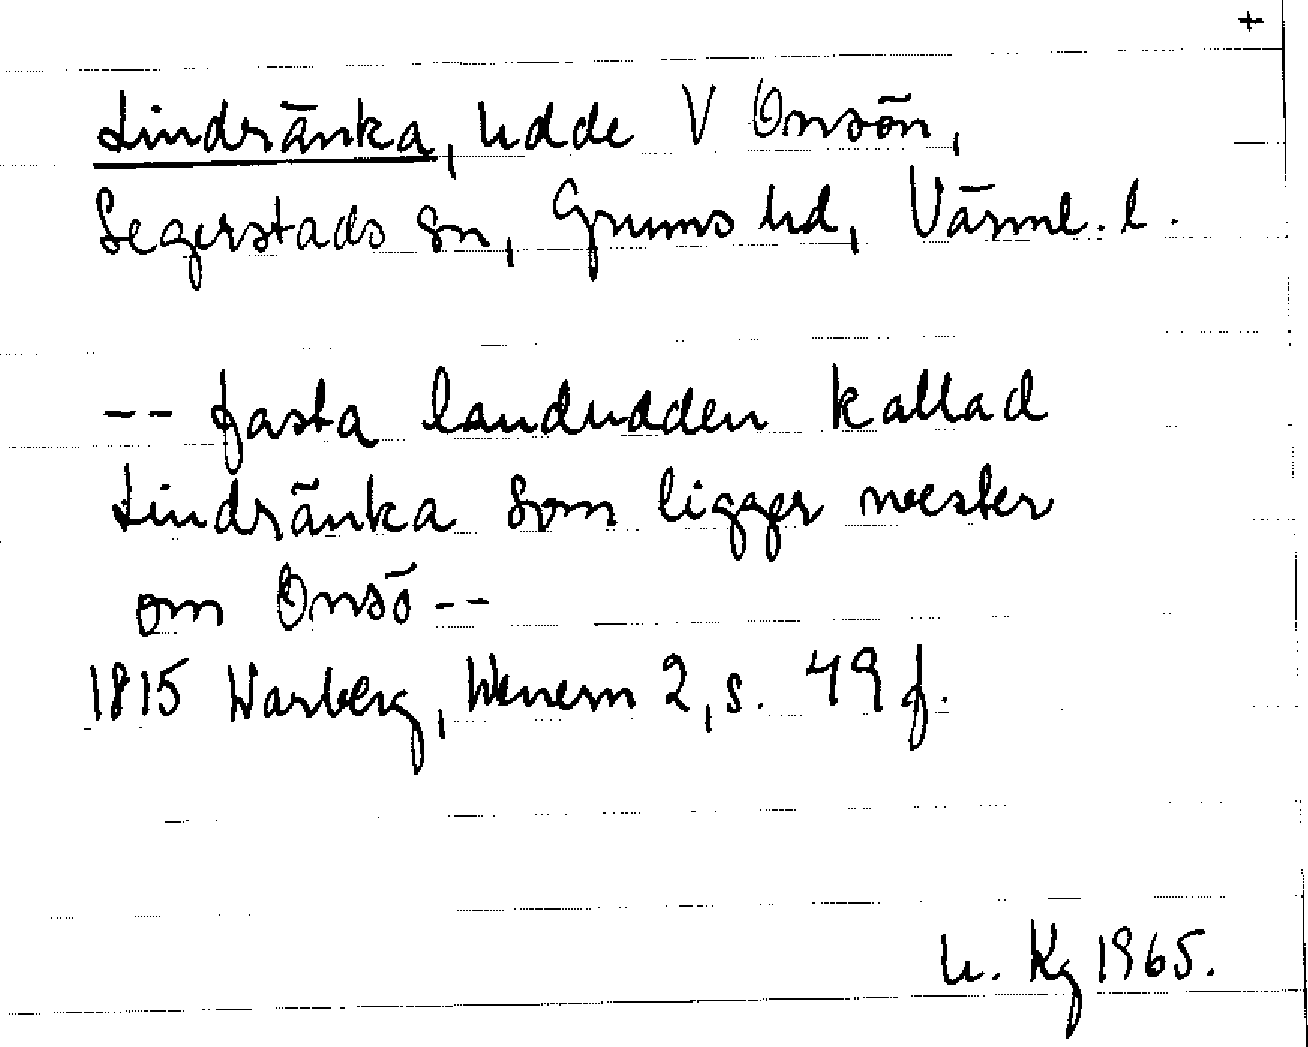 +
Lindränka, udde V Onsön,
Segerstads sn, Grums hd, Värml. l.
-- fasta landudden kallad
Lindränka som ligger wester
om Onsö --
1815 Warberg, Wenern 2, s. 49 f.
U. Kg 1965.